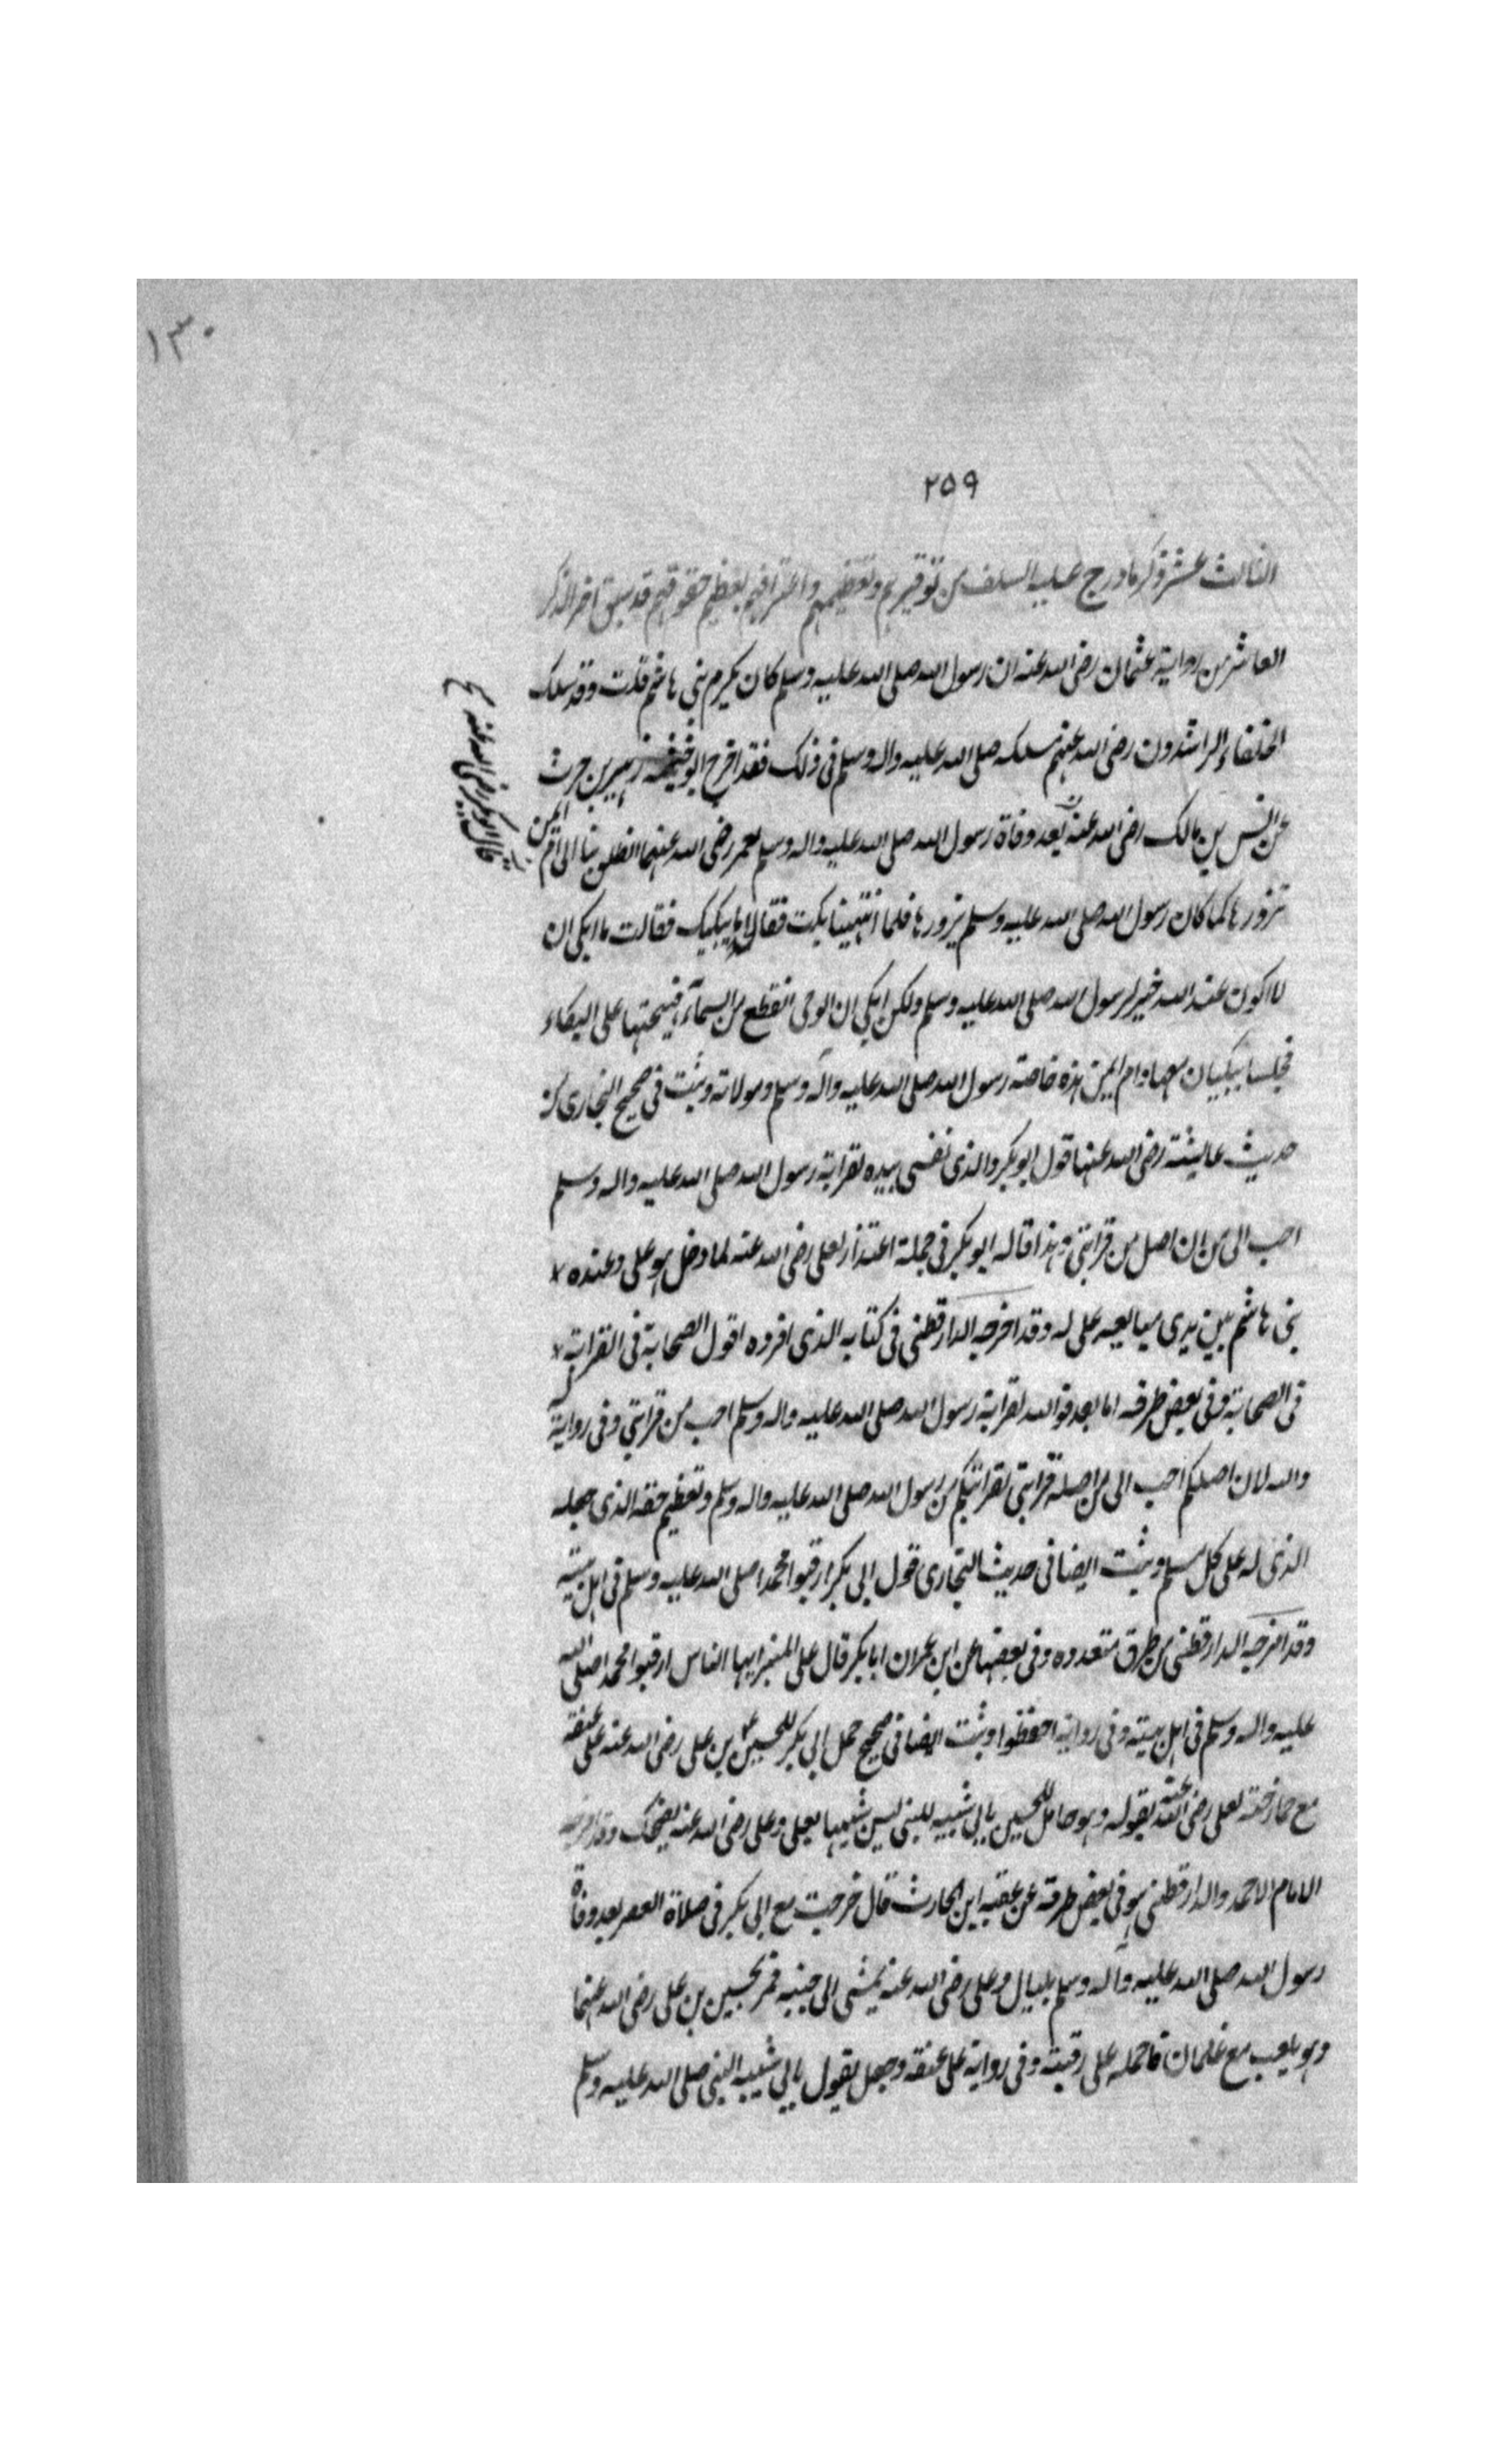 ١٣٠
٢٥٩
الثالث عشر ذكر ما درج عليه السلف من توقيرهم وتعظيمهم واعترافهم بعظيم حقوقهم قد سبق اخر الذكر
العاشر من رواية عثمان رضى الله عنه ان رسول الله صلى الله عليه وسلم كان يكرم بنى هاشم قلت وقد سلك
الخلفاء الراشدون رضى الله عنهم مسلكه صلى الله عليه واله وسلم فى ذلك فقد اخرج ابو خيثمة زهير بن حرث
عن انس بن مالك رضى الله عنه بعد وفاة رسول الله صلى الله عليه واله وسلم لعمر رضى الله عنهما انطلق بنا الى ام ايمن
قال ابو بكر رضى الله عنه صح
نزورها كما كان رسول الله صلى الله عليه وسلم يزورها فلما انتهينا بكت فقالا ما يبكيك فقالت ما ابكى ان
لا اكون عند الله خير لرسول الله صلى الله عليه وسلم ولكن ابكى ان الوحى انقطع من السماء فهيجتهما على البكاء
فجلسا يبكيان معها وام ايمن هذه خاصته رسول الله صلى الله عليه وآله وسلم ومولاته وثبت فى صحيح البخارى من
حديث عايشة رضى الله عنها قول ابو بكر والذى نفسى بيده لقرابة رسول الله صلى الله عليه واله وسلم
احب الى من ان اصل من قرابتى وهذا قاله ابو بكر فى جملة اعتذار لعلى رضى الله عنه لما دخل هو على وعنده
بنى هاشم بين يدى مبايعه على له وقد اخرجه الدارقطنى فى كتابه الذى افرده اقول الصحابة فى القرابة
فى الصحابة وفى بعض طرقه اما بعد فو الله لقرابة رسول الله صلى الله عليه واله وسلم احب من قرابتى وفى رواية
والله لان اصلكم احب الى من اصله قرابتى لقرابتكم من رسول الله صلى الله عليه واله وسلم وتعظيم حقه الذى جعله
الذى له على كل مسلم وثبت ايضا فى حديث البخارى قول ابى بكر ارقبوا محمدا صلى الله عليه وسلم فى اهل بيته
وقد اخرجه الدارقطنى من طرق متعدده وفى بعضها عن ابن عمر ان ابا بكر قال على المنبر ايها الناس ارقبوا محمدا صلى الله
عليه واله وسلم فى اهل بيته وفى رواية احفظوا وثبت ايضا فى صحيح حمل ابى بكر للحسين بن على رضى الله عنه على عنقه
مع ممازحته لعلى رضى الله عنه بقوله وهو حامل للحسين بابى شبيه للنبى ليس شبيها بعلى وعلى رضى الله عنه يضحك وقد اخرجه
الامام الاحمد والدارقطنى وفى بعض طرقه عن عقبه ابن الحارث قال خرجت مع ابى بكر فى صلاة العصر بعد وفاة
رسول الله صلى الله عليه وآله وسلم بليال وعلى رضى الله عنه يمشى الى جنبه فمر بحسين بن على رضى الله عنهما
وهو يلعب مع غلمان فاحمله على رقبته وفى رواية على عنقه وجعل يقول بابى شبيه النبى صلى الله عليه وسلم